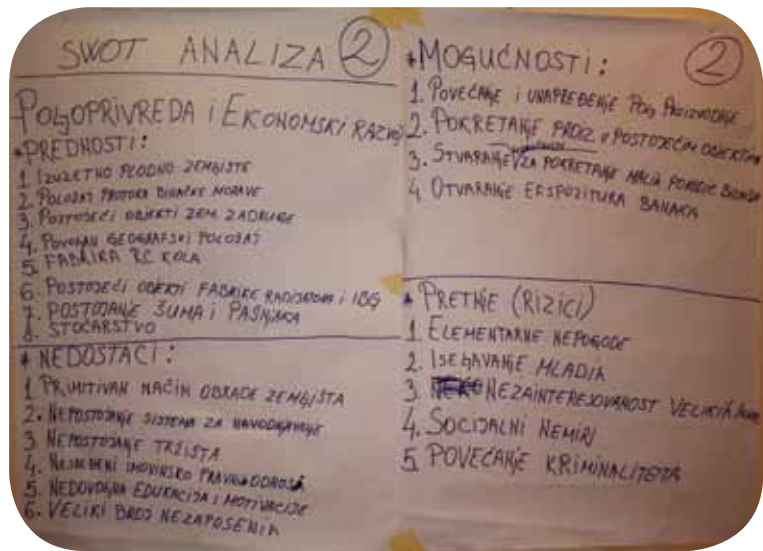 SWOT ANALIZA 2
POLJOPRIVREDA I EKONOMSKI RAZVOJ
* PREDNOSTI:
1. IZUZETNO PLODNO ZEMLJIŠTE
2. POLOŽAJ PROTOKA BINAČKE MORAVE
3. POSTOJEĆI OBJEKTI ZEM. ZADRUGE
4. POVOLJAN GEOGRAFSKI POLOŽAJ
5. FABRIKA RC KOLA
6. POSTOJEĆI OBJEKTI FABRIKE RADIJATORA I IBG
7. POSTOJANJE ŠUMA I PAŠNJAKA
8. STOČARSTVO
* NEDOSTACI:
1. PRIMITIVAN NAČIN OBRADE ZEMLJIŠTA
2. NEPOSTOJANJE SISTEMA ZA NAVODNJAVANJE
3 NEPOSTOJANJE TRŽIŠTA
4. NESREĐENI IMOVINSKO PRAVNI ODNOSI
5. NEDOVOLJNA EDUKACIJA I MOTIVACIJE
6. VELIKI BROJ NEZAPOSENIH
* MOGUĆNOSTI: 2
1. POVEĆANJE I UNAPREĐENJE POLJ PROIZVODNJE
2. POKRETANJE PROIZ. U POSTOJEĆIM OBJEKTIMA
3. STVARANJE ZA POKRETANJE MALIH PORODIČ BIZNISA
4 OTVARANJE EKSPOZITURA BANAKA
* PRETNJE (RIZICI)
1. ELEMENTARNE NEPOGODE
2. ISELJAVANJE MLADIH
3. NEZAINTERESOVANOST VELIKIH
4. SOCIJALNI NEMIRI
5. POVEĆANJE KRIMINALITETA